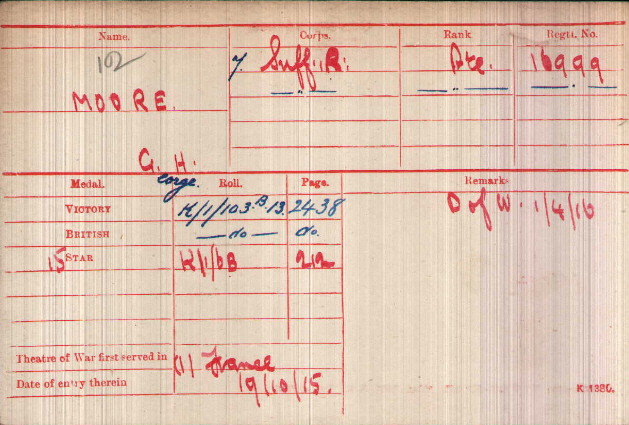 Name. Corps. Rank Regtl. No.
102
7. Suff. R. Pte. 16999
MOORE.
" "
G. H.
eorge.
Medal. Roll. Page. Remarks
VICTORY K/1/103.B.13. 2438 D of W. 1/4/16
BRITISH — do — do.
15 STAR K/1/6B 212
Theatre of War first served in (1) France
Date of entry therein 19/10/15.
K 1380.